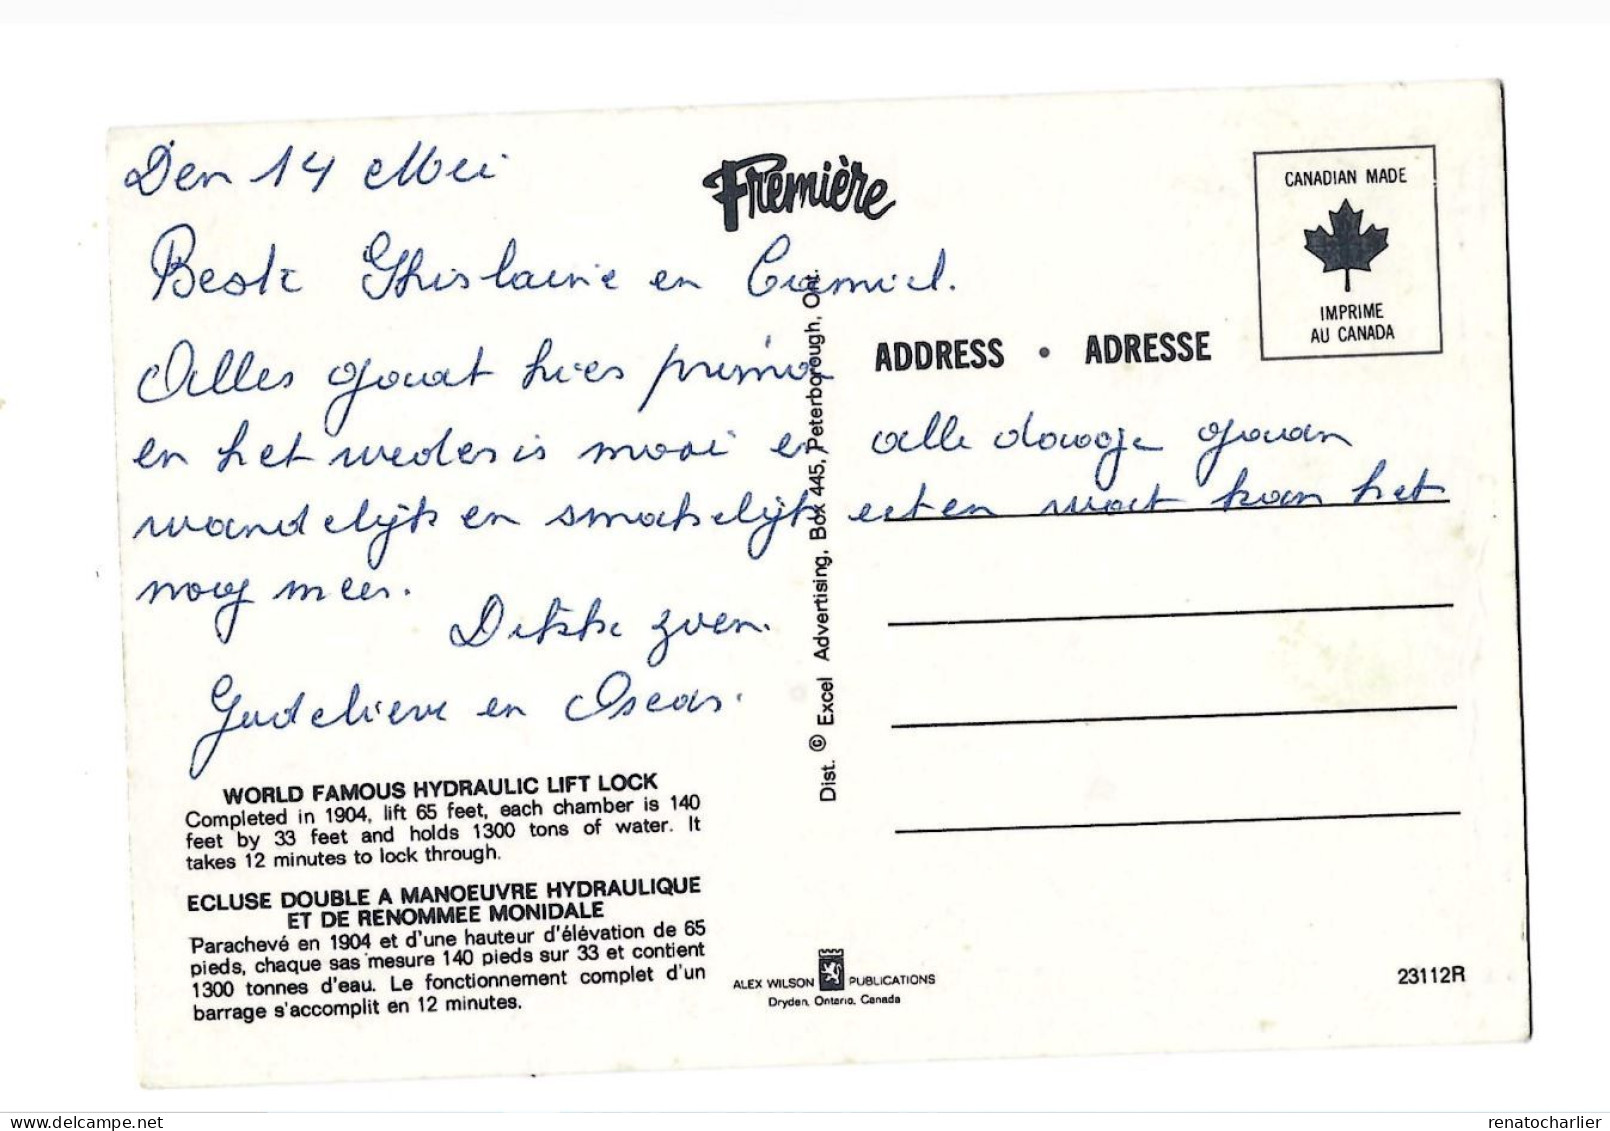 Den 14 Mei
Première
CANADIAN MADE
IMPRIME
AU CANADA
Beste Ghislaine en Camiel.
ADDRESS • ADRESSE
Alles gaat hier prima
en het weder is mooi en alle dage gaan
wandelijk en smakelijk eeten wat kan het
nog meer.
Dikke zoen.
Godelieve en Oscar.
Dist. © Excel Advertising, Box 445, Peterborough, Ont.
WORLD FAMOUS HYDRAULIC LIFT LOCK
Completed in 1904, lift 65 feet, each chamber is 140
feet by 33 feet and holds 1300 tons of water. It
takes 12 minutes to lock through.
ECLUSE DOUBLE A MANOEUVRE HYDRAULIQUE
ET DE RENOMMEE MONIDALE
Parachevé en 1904 et d'une hauteur d'élévation de 65
pieds, chaque sas mesure 140 pieds sur 33 et contient
1300 tonnes d'eau. Le fonctionnement complet d'un
barrage s'accomplit en 12 minutes.
ALEX WILSON PUBLICATIONS
Dryden, Ontario, Canada
23112R
renatocharlier